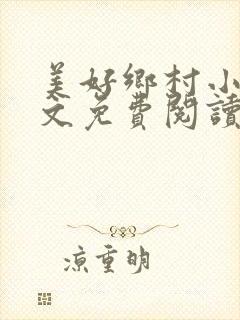 美好鄉村小
文免費閱讀
涼重明